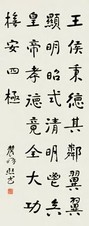 王侯秉德其鄰翼翼
顯明昭式清明鬯矣
皇帝孝德竟全大功
撫安四極